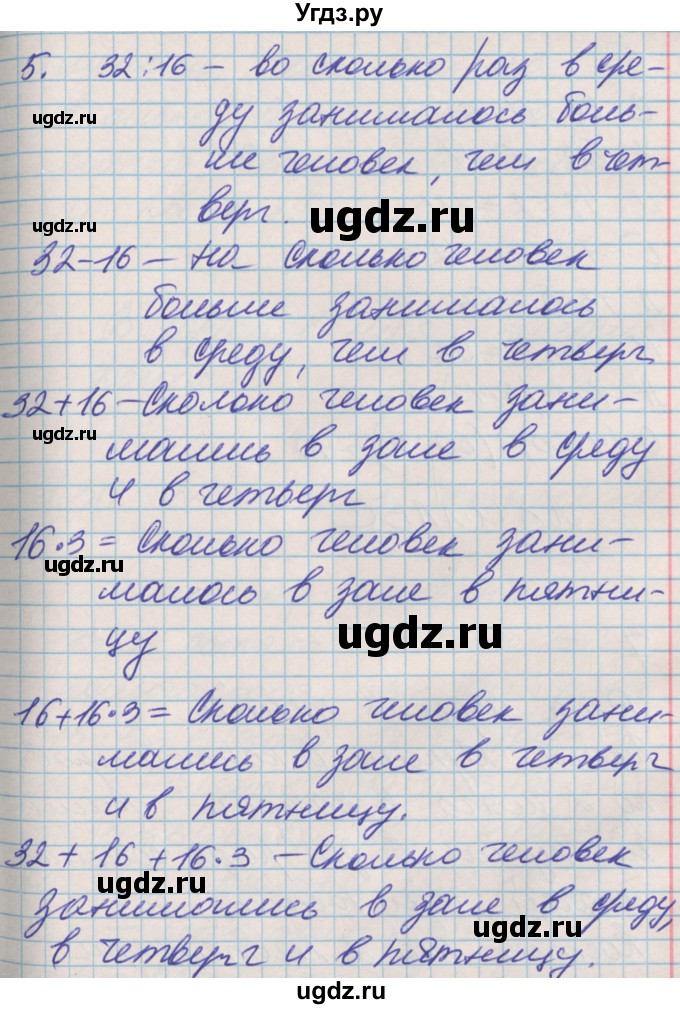 Угдз.ру
5. 32:16 – во сколько раз в сре-
ugdz.ru
ду занималось боль-
ше человек, чем в чет-
ugdz.ru
верг.
ugdz.ru
32-16 – на сколько человек
больше занималось
в среду, чем в четверг
32+16 – Сколоко человек зани-
ugdz.ru
мались в зале в среду
и в четьверг
16·3 = Сколько человек зани-
ugdz.ru
малось в зале в пятни-
ugdz.ru
цу
16+16·3 = Сколько человек зани-
ugdz.ru
мались в зале в четверг
и в пятницу.
32 + 16 + 16·3 – Сколько человек
ugdz.ru
занимались в зале в среду,
в четверг и в пятницу.
ugdz.ru
ugdz.ru